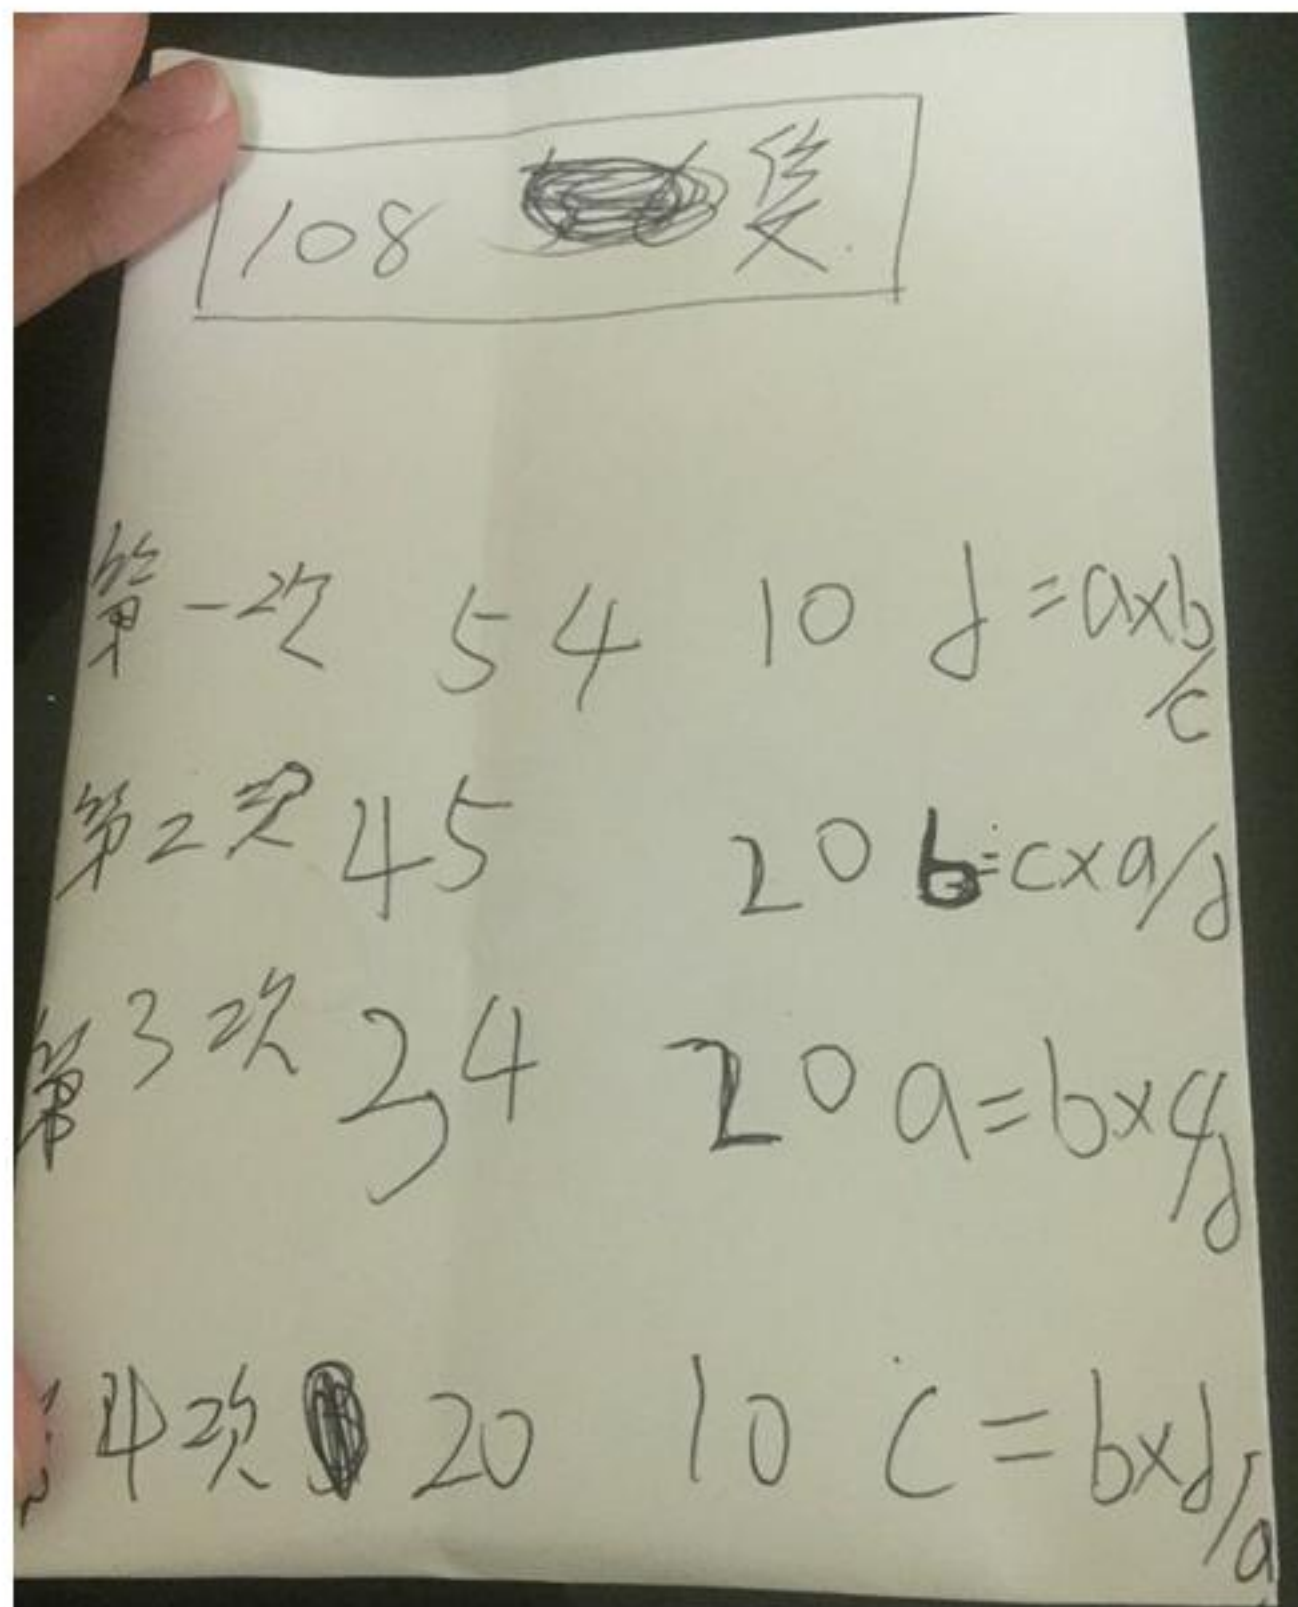 108
第一次 54 10 d=axb/c
第2次 45 20 b=cxa/d
第3次 34 20 a=bxc/d
4次 20 10 c=bxd/a